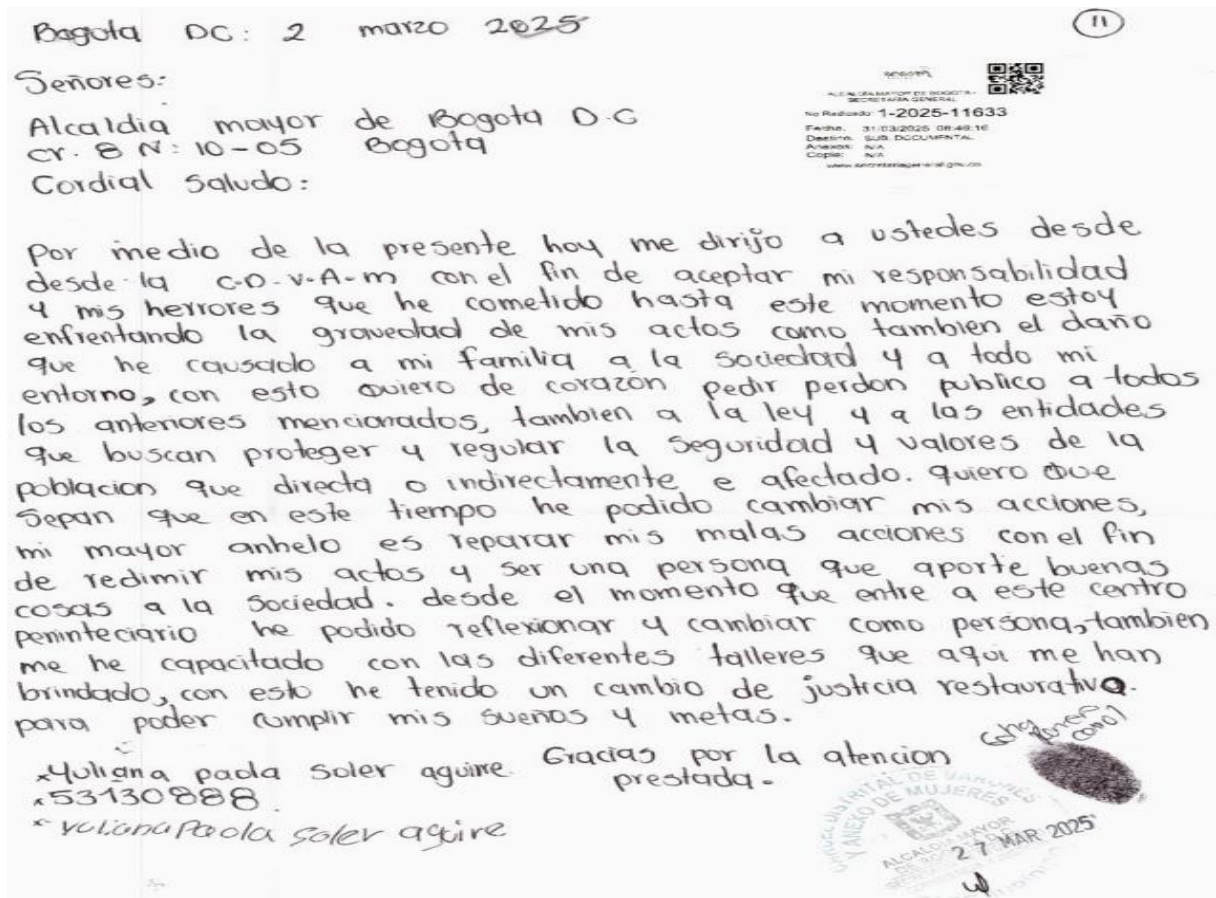 Bogota DC: 2 marzo 2025
11
Señores:
Alcaldia mayor de Bogota D.C
cr. 8 N: 10-05 Bogota
Cordial saludo:
BOGOTÁ
ALCALDIA MAYOR DE BOGOTA -
SECRETARIA GENERAL
No Radicado: 1-2025-11633
Fecha: 31/03/2025 08:49:16
Destino: SUB. DOCUMENTAL
Anexos: N/A
Copia: N/A
www.secretariageneral.gov.co
Por medio de la presente hoy me dirijo a ustedes desde
desde la C.D.V.A.m con el fin de aceptar mi responsabilidad
y mis herrores que he cometido hasta este momento estoy
enfrentando la gravedad de mis actos como tambien el daño
que he causado a mi familia a la sociedad y a todo mi
entorno, con esto quiero de corazón pedir perdon publico a todos
los anteriores mencionados, tambien a la ley y a las entidades
que buscan proteger y regular la seguridad y valores de la
poblacion que directa o indirectamente e afectado. quiero que
sepan que en este tiempo he podido cambiar mis acciones,
mi mayor anhelo es reparar mis malas acciones con el fin
de redimir mis actos y ser una persona que aporte buenas
cosas a la sociedad. desde el momento que entre a este centro
peninteciario he podido reflexionar y cambiar como persona, tambien
me he capacitado con las diferentes talleres que aqui me han
brindado, con esto he tenido un cambio de justicia restaurativa.
para poder cumplir mis sueños y metas.
Gracias por la atencion
prestada.
*Yuliana paola soler aguirre
*53130888
*Yuliana Paola soler aguire
DISTRITAL DE VARONES
Y ANEXO DE MUJERES
ALCALDIA MAYOR
27 MAR 2025